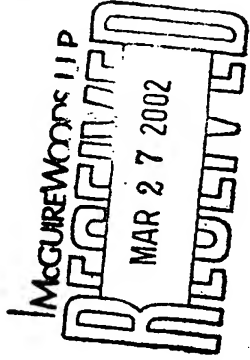 McGUIREWOODS LLP
RECEIVED
MAR 27 2002
RECEIVED